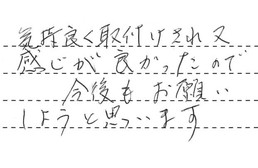 気持良く取付けされ又
感じが良かったので
今後もお願い
しようと思います